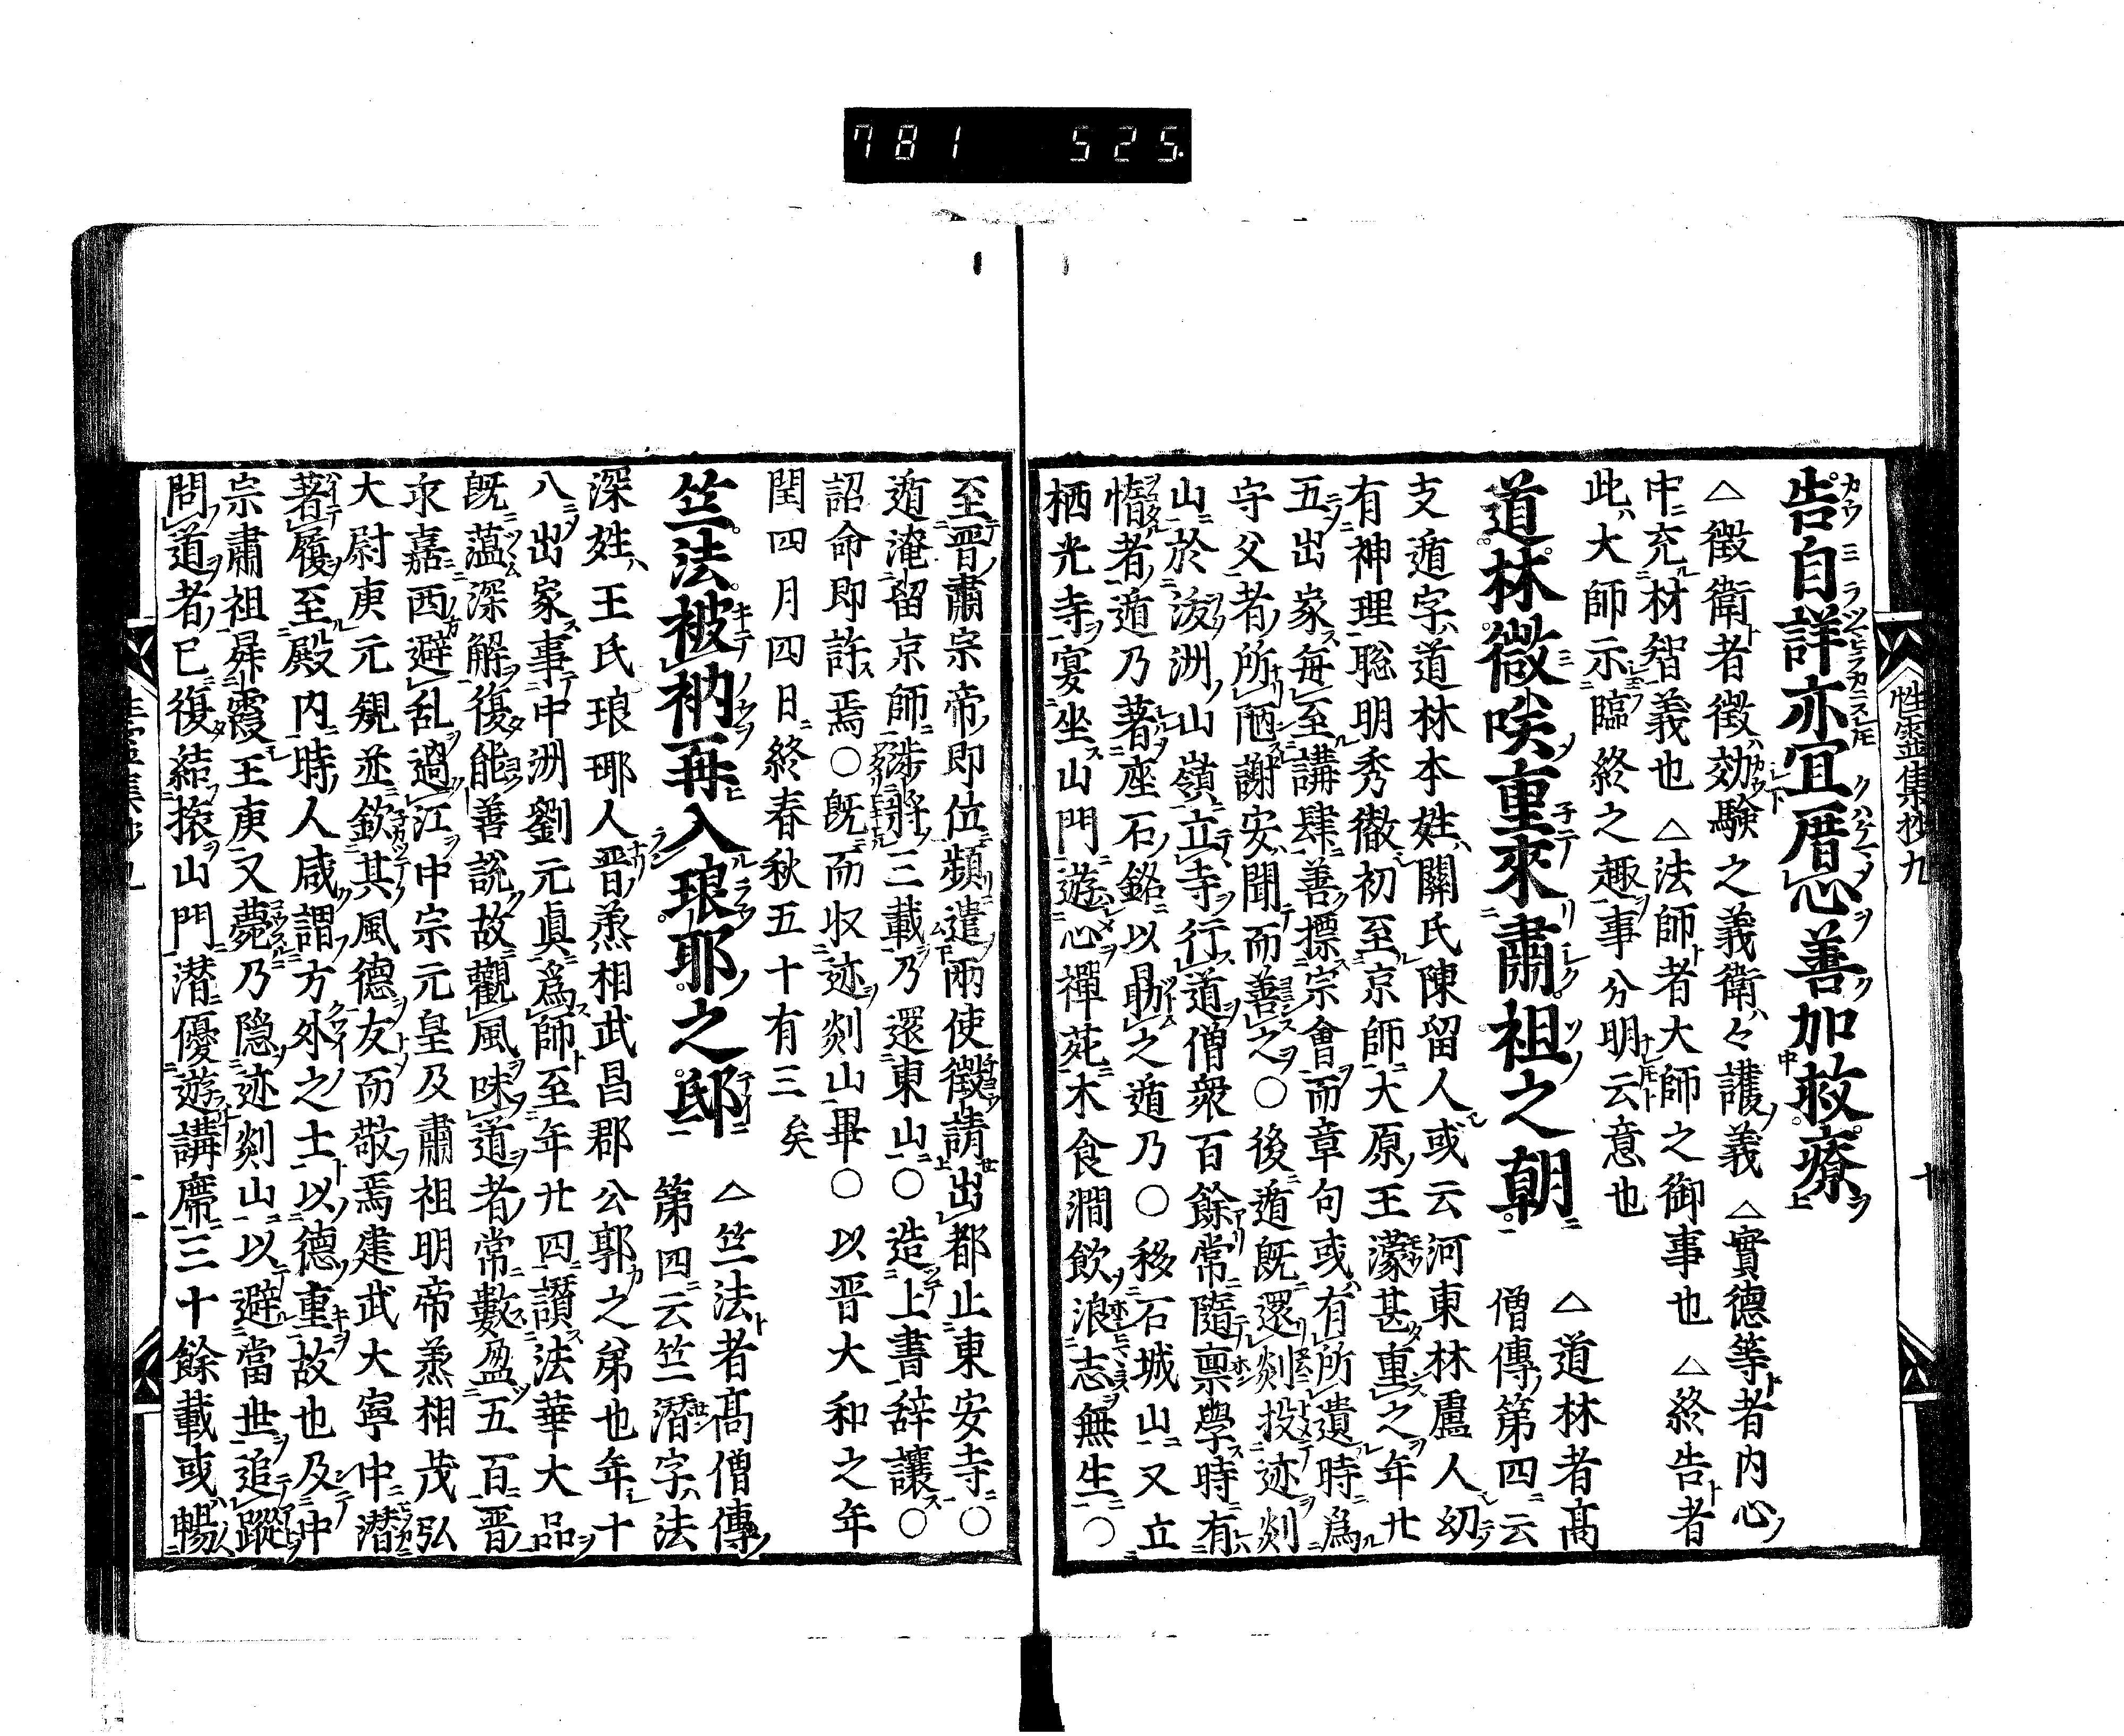 781 525
性靈集抄九 十
告自詳亦宜厝心善加救療
△徴衛者徴効驗之義衛々護義△實德等者内心
中充材智義也△法師者大師之御事也△終告者
此大師示臨終之趣事分明云意也
道林微唉重來肅祖之朝 △道林者髙
僧傳第四云
支遁字道林本姓關氏陳留人或云河東林盧人幼
有神理聡明秀徹初至京師大原王濛甚重之年廿
五出家毎至講肆善摽宗會而章句或有所遺時爲
守父者所陋謝安聞而善之○後遁既還剡投迹剡
山於㳊洲山嶺立寺行道僧衆百餘常隨禀學時有
惰者遁乃著座石銘以勗之遁乃○移石城山又立
栖光寺宴坐山門遊心禪苑木食澗飲浪志無生○
至晋肅宗帝即位頻遣兩使徴請出都止東安寺○
遁淹留京師渉將三載乃還東山○造上書辞讓○
詔命即許焉○既而収迹剡山畢○以晋大和之年
閏四月四日終春秋五十有三矣
竺法被衲再入琅耶之邸 △竺法者髙僧傳
第四云竺潛字法
深姓王氏琅耶人晋烝相武昌郡公郭之弟也年十
八出家事中洲劉元眞爲師至年廿四讃法華大品
既蕰深解復能善説故觀風味道者常數盈五百晋
永嘉西避乱過江中宗元皇及肅祖明帝烝相茂弘
大尉庚元䂓並欽其風德友而敬焉建武大寧中潛
著履至殿内時人咸謂方外之士以德重故也及中
宗肅祖昇霞王庚又薨乃隠迹剡山以避當世追蹤
問道者已復結𢱢山門潜優遊講席三十餘載或暢